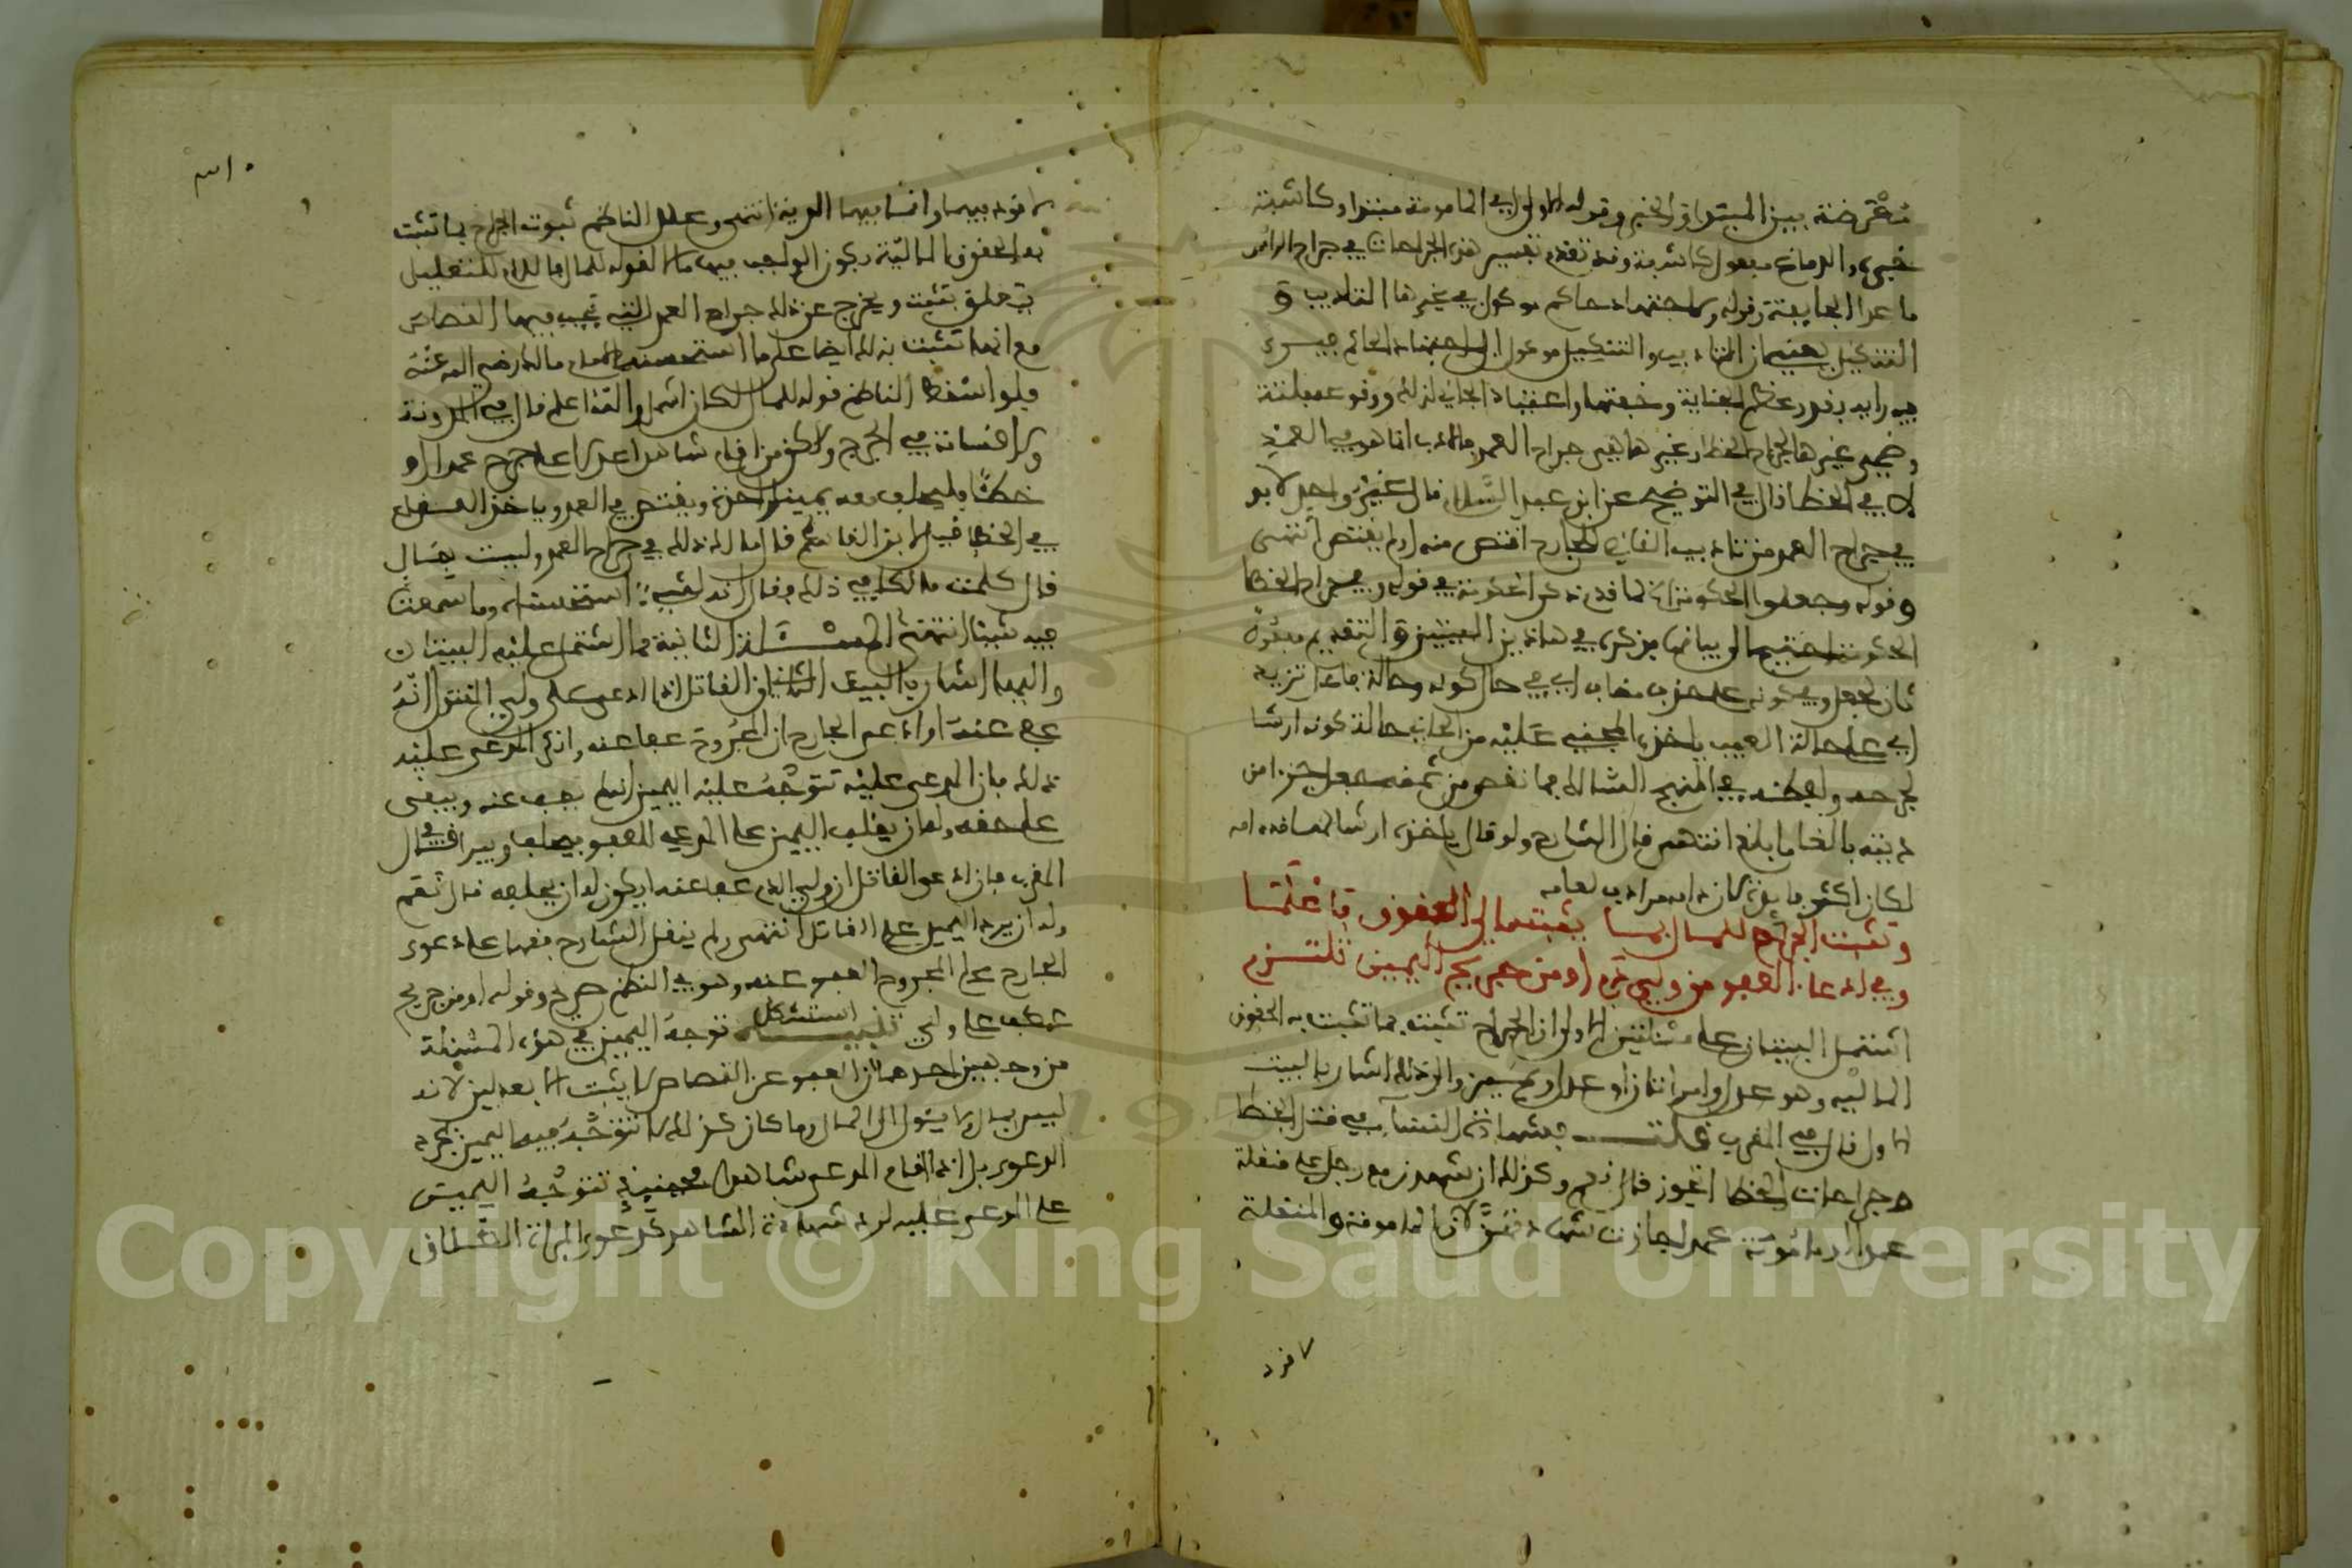 معترضة بين المبتدا والخبر وقوله الاولى اي المامومة مبتدا وكاشفة
خبره والدماغ مفعول كاشفة وقد تقدم تفسير هذه الجراحات في جراح الراس
ما عدا الجايفة وقوله ولاجتهاد حاكم موكول في غيرها التاديب و
التنكيل يعني ان التاديب والتنكيل موكول الى اجتهاد الحاكم
فيه رايه بقدر عظم الجناية وخفتها واعتياد الجاني لذلك ووقوعه فلتة
وضمير غيرها لجراح الخطا وغيرها هي جراح العمد فالادب انما هو في العمد
لا في الخطا قال في التوضيح عن ابن عبد السلام قال غير واحد لا بد
في جراح العمد من تاديب القاضي الجارح اقتص منه او لم يقتص انتهى
وقوله وجعلوا الحكومة انما قدم ذكر الحكومة في قوله وفي جراح الخطا
الحكومة احتيج الى بيانها فذكره في هاذين البيتين والتقديم مفعول
ثان لجعل وفي كونه على حذف مضاف اي في حال كونه وحالة
اي على حالة العيب ياخذه المجني عليه من الجاني حالة كونه ارشا
لجرحه
ديته بالغا ما بلغ انتهى قال الشارح ولو قال ياخذه ارشا
لكان اكثر
وتثبت الجراح للمال بما يثبت مالي الحقوق فاعلما
وفي ادعاء العفو من ولي دم او من جريح اليمين تلتزم
اشتمل البيتان على مسئلتين الاولى ان الجراح تثبت بما تثبت به الحقوق
المالية وهو عدل وامراتان او عدل ويمين والى ذلك اشار بالبيت
الاول قال في المقرب قلت فشهادة النساء في قتل الخطا
وجراحات الخطا اتجوز قال نعم وكذلك ان شهدن مع رجل على منقلة
عمدا او مامومة عمدا جازت شهادتهن لان المامومة والمنقلة
لا قود فيهما وانما فيهما الدية انتهى وعلل الناظم ثبوت الجراح بما تثبت
به الحقوق المالية بكون الواجب فيها مالا لقوله للمال فاللام للتعليل
يتعلق بتثبت ويخرج عن ذلك جراح العمد التي تجب فيها القصاص
مع انها تثبت بذلك ايضا على ما استحسنه الامام مالك رضي الله عنه
فلو اسقط الناظم قوله للمال لكان اشمل والله اعلم قال في المدونة
ولا قسامة في الجرح ولاكن من اقام شاهدا عدلا على جرح عمدا او
خطئا فليحلف معه يمينا واحدة ويقتص في العمد وياخذ العقل
في الخطا قيل لابن القاسم قال مالك ذلك في جراح العمد وليست بمال
قال كلمت مالكا في ذلك فقال انه لشيء استحسناه وما سمعت
فيه شيئا انتهى المسئلة الثانية مما اشتمل عليه البيتان
واليها اشار بالبيت الثاني ان القاتل اذا ادعى على ولي المقتول انه
عفى عنه او ادعى الجارح ان المجروح عفا عنه وانكر المدعى عليه
ذلك فان المدعى عليه تتوجه عليه اليمين انه لم يعف عنه ويبقى
على حقه وله ان يقلب اليمين على المدعي للعفو فيحلف ويبرا قال في
المقرب فان ادعى القاتل ان ولي الدم عفا عنه ايكون له ان يحلفه قال نعم
وله ان يرد اليمين على القاتل انتهى ولم ينقل الشارح فقها على دعوى
الجارح على المجروح العفو عنه وهو في النظم صريح وقوله او من جريح
عطف على ولي تنبيه استشكل توجه اليمين في هذه المسئلة
من وجهين احدهما ان العفو عن القصاص لا يثبت الا بعدلين لانه
ليس بمال ولا يئول الى المال وما كان كذلك لا تتوجه فيه اليمين بمجرد
الدعوى بل اذا اقام المدعي شاهدا فحينئذ تتوجه اليمين
على المدعى عليه لرد شهادة الشاهد كدعوى المراة الطلاق
Copyright © King Saud University